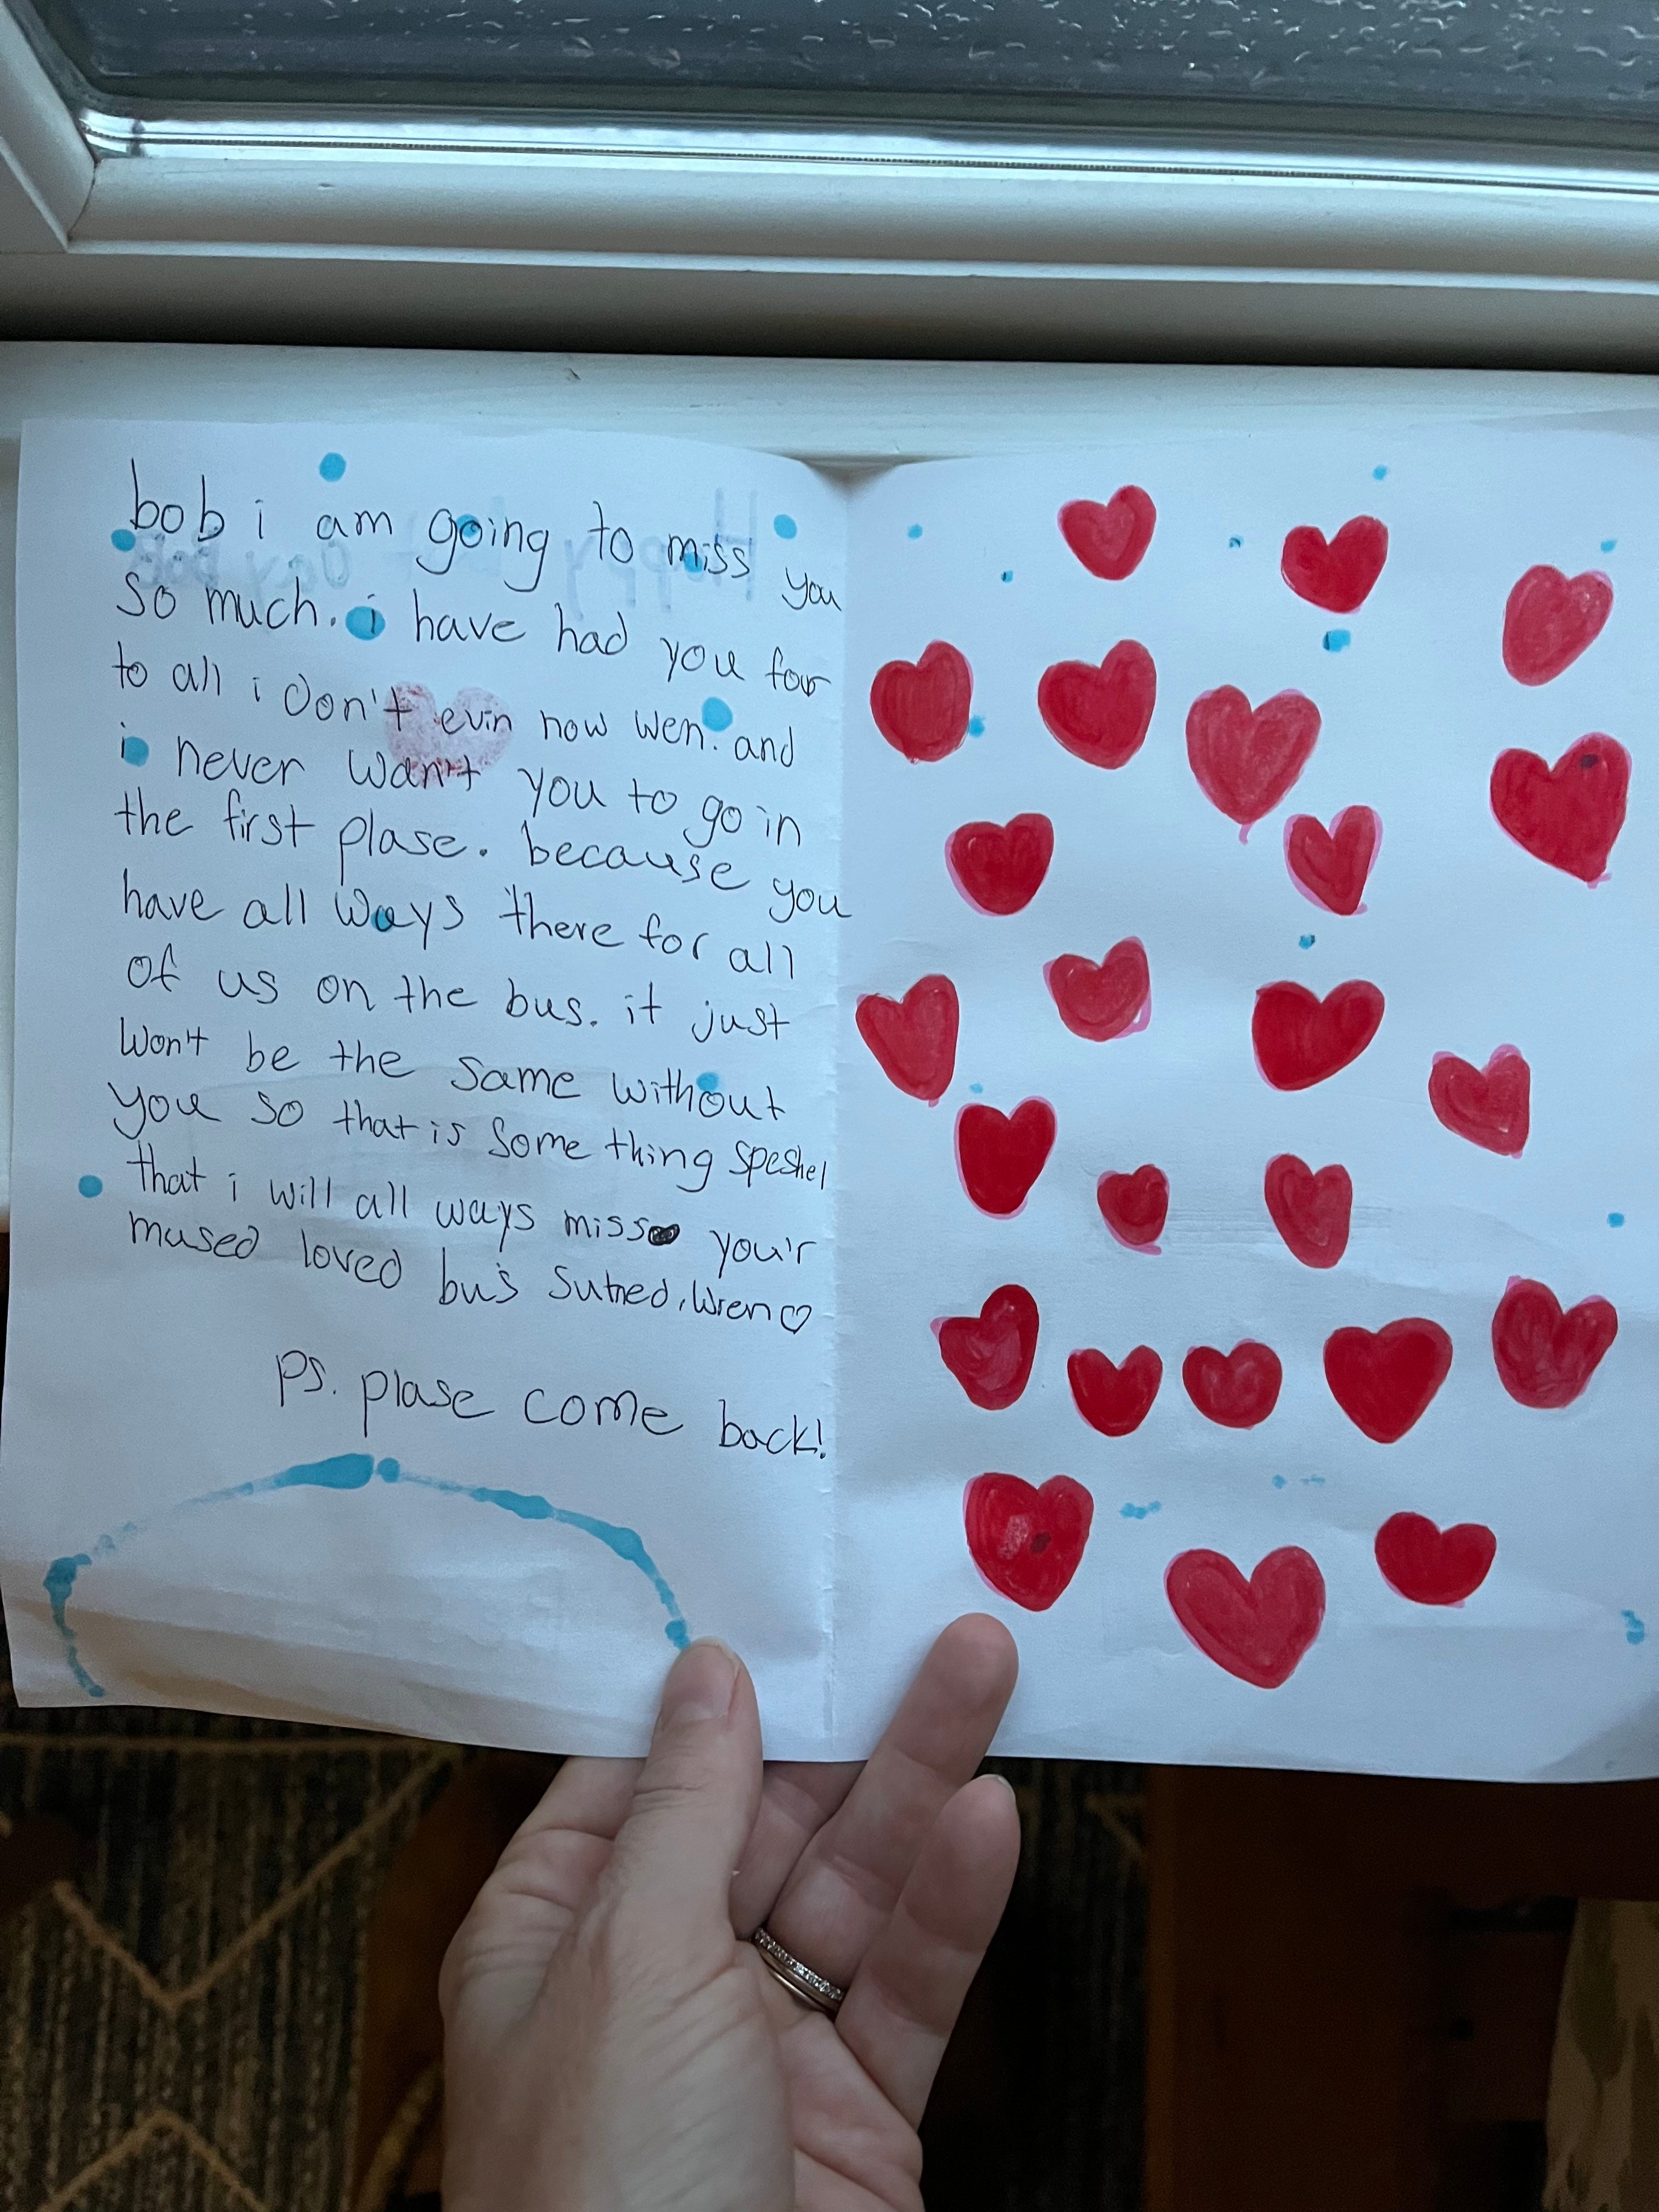 bob i am going to miss you
so much. i have had you for
to all i don't evin now wen. and
i never wan't you to go in
the first plase. because you
have all ways there for all
of us on the bus. it just
won't be the same without
you so that is some thing speshel
that i will all ways miss you'r
mused loved bus suthed, Wren♡
Ps. plase come back!